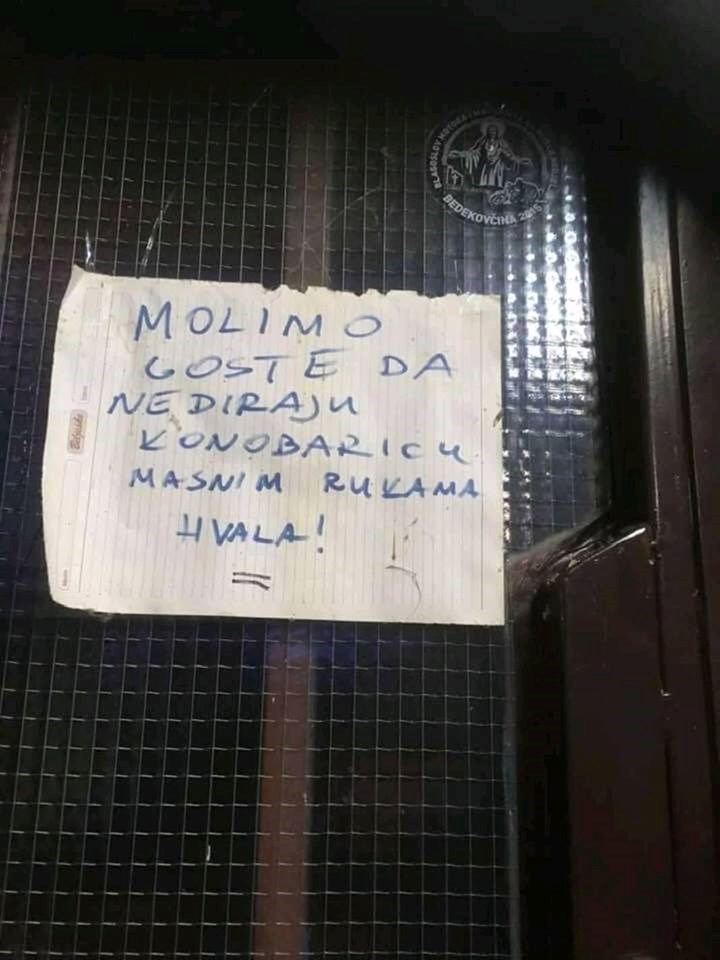 MOLIMO
GOSTE DA
NEDIRAJU
KONOBARICU
MASNIM RUKAMA
HVALA!
BEDEKOVČINA 2015